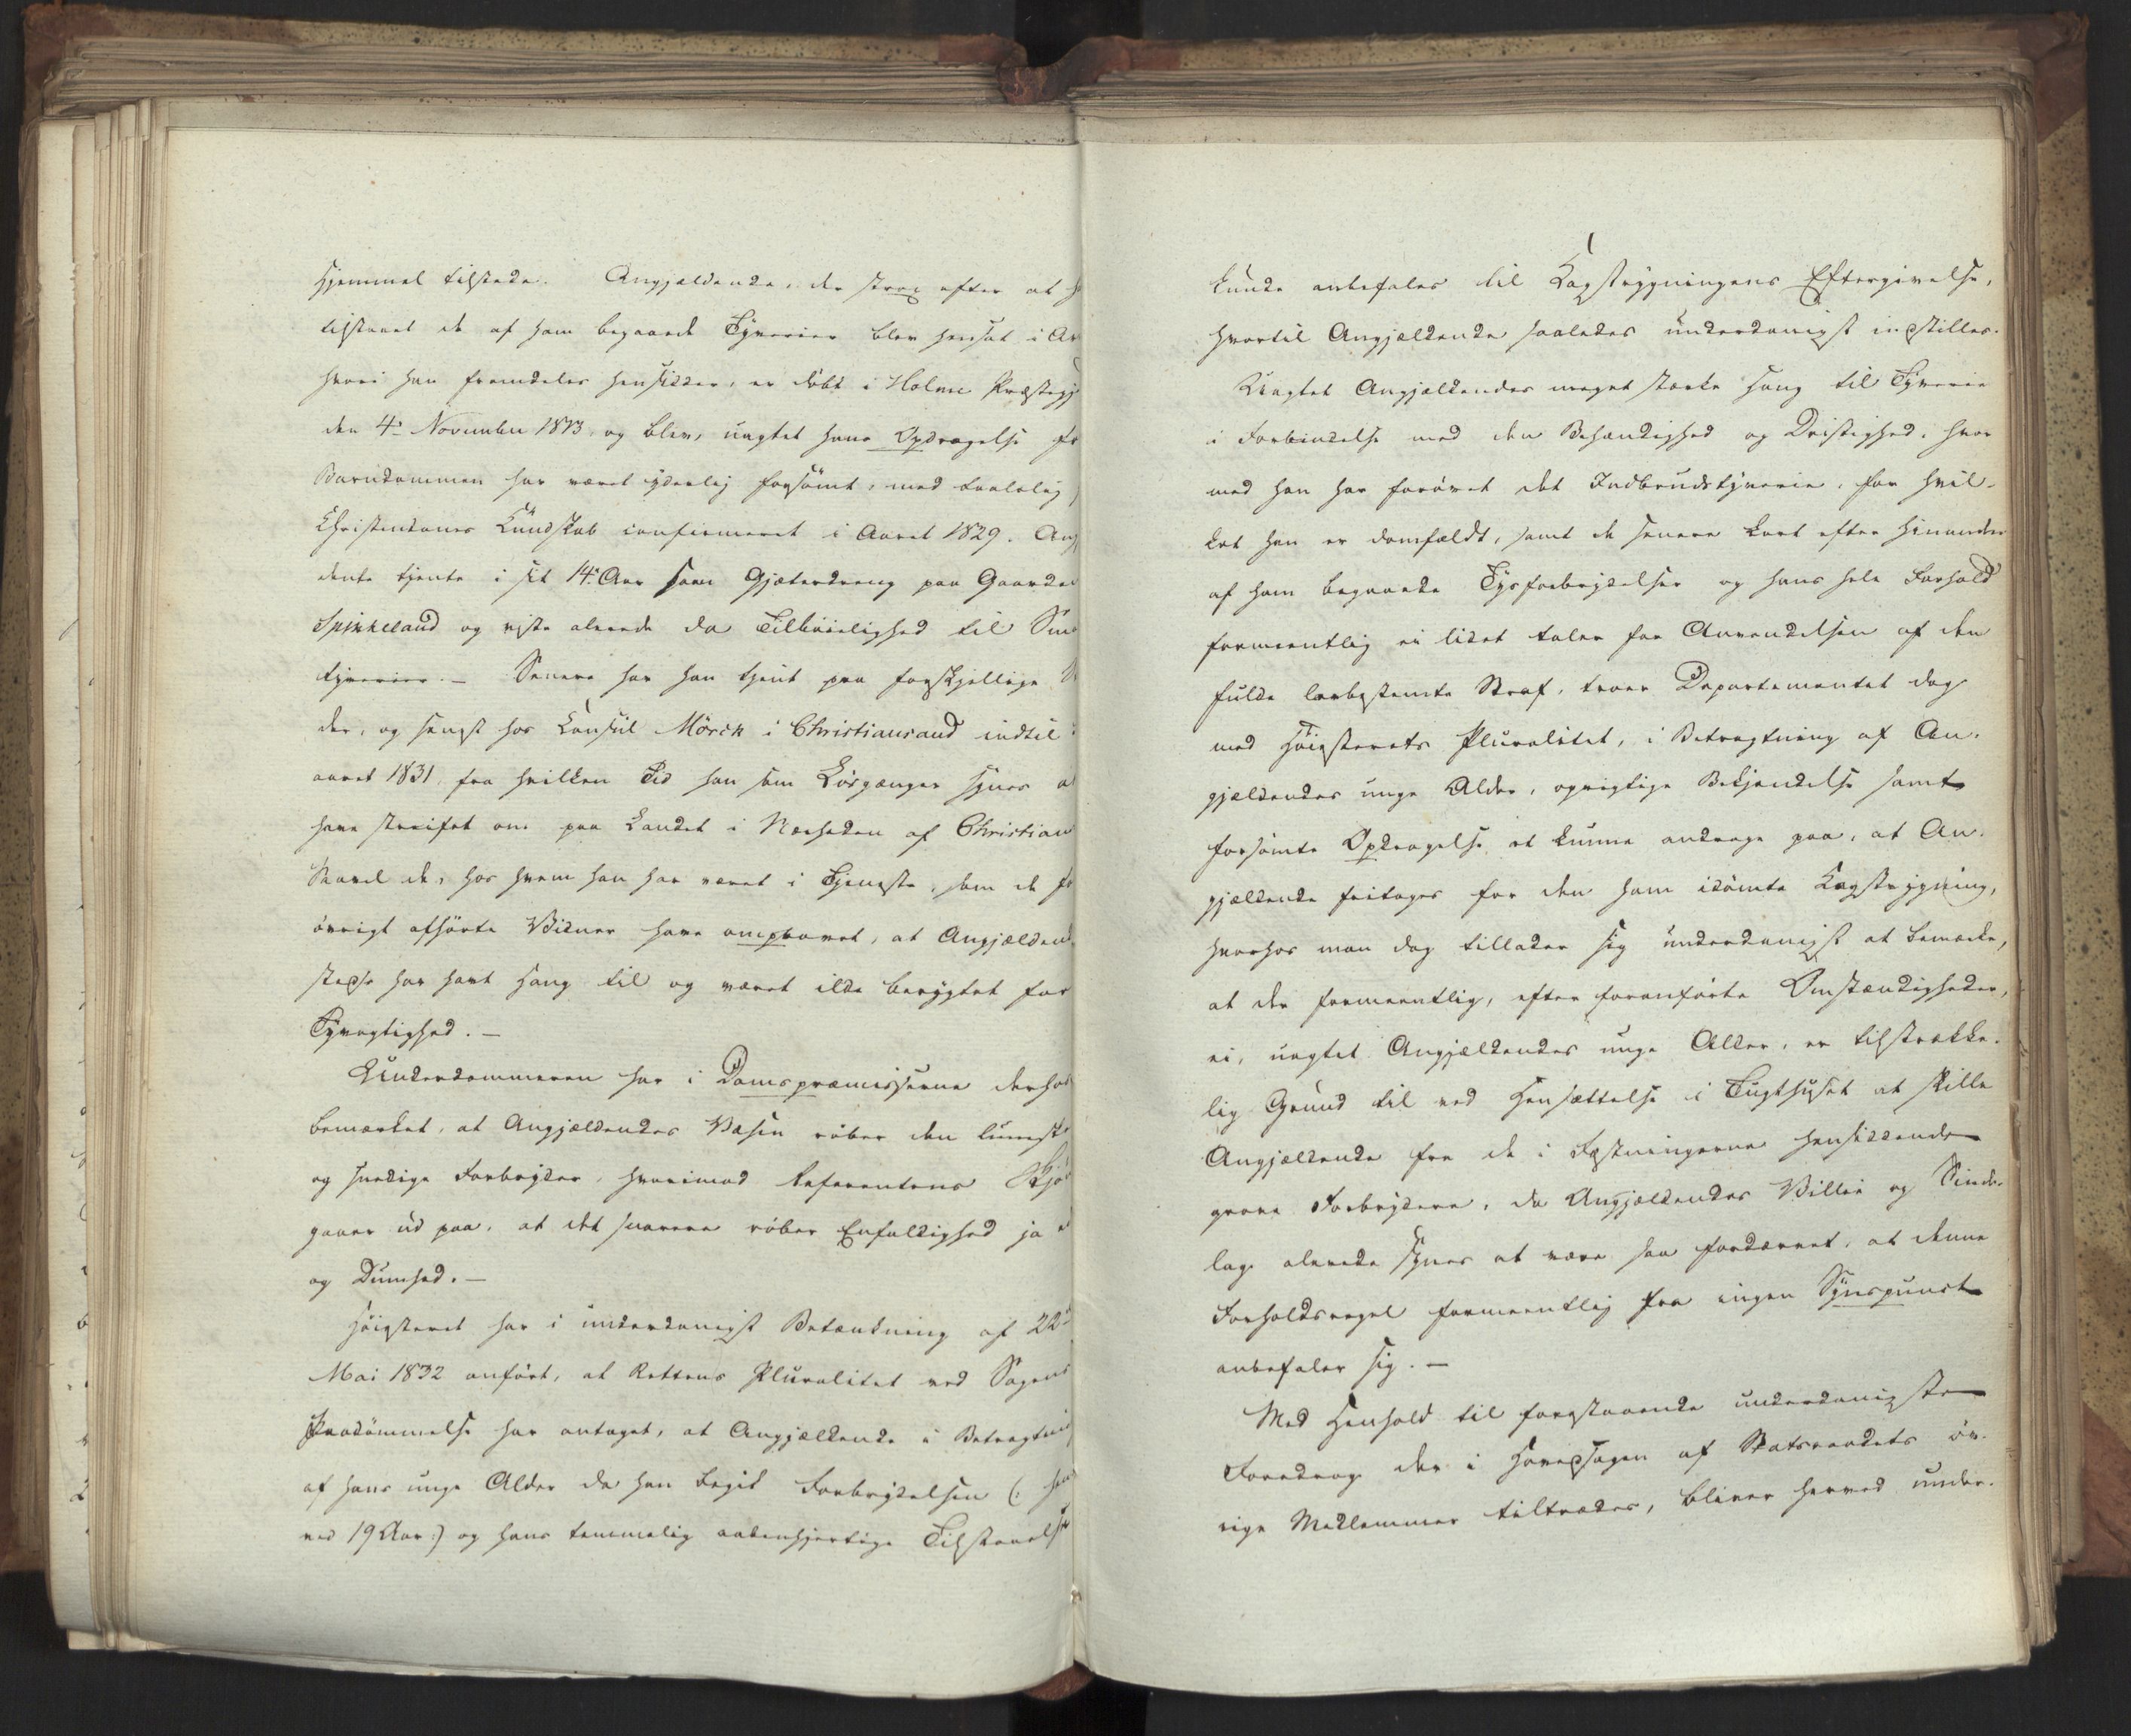 Hjemmel tilstede. Angjældende, der strax efter at h
tilstaaet de af ham begaaede Tyverier blev hensat i Ar
hvori han fremdeles hensidder, er döbt i Holme Præstegj
den 4de November 1813, og blev, uagtet hans Opdragelse fr
Barndommen har været yderlig forsömt, med taalelig
Christendoms Kundskab confirmeret i Aaret 1829. Ang
dende tjente i sit 14de Aar som Gjæterdreng paa Gaarden
Spikkeland og viste allerede da Tilböielighed til Smaa
tyverier. — Senere har han tjent paa forskjellige St
der, og senest hos Konsul Mörch i Christiansand indtil
aaret 1831, fra hvilken Tid han som Lösgænger synes at
have streifet om paa Landet i Nærheden af Christian
Saavel de, hos hvem han har været i Tjeneste, som de f
övrigt afhörte Vidner have omprovet, at Angjældend
stedse har havt Hang til og været ilde berygtet for
Tyvagtighed. —
Underdommeren har i Domspræmisserne derhos
bemærket, at Angjældendes Væsen röber den lumske
og snedige Forbryder, hvorimod Referentens Skjö
gaaer ud paa, at det snarere röber Enfoldighed ja
og Dumhed. —
Höiesteret har i underdanigst Betænkning af 22de
Mai 1832 anfört, at Rettens Pluralitet ved Sagens
Paadömmelse har antaget, at Angjældende i Betragtning
af hans unge Alder da han begik Forbrydelsen (: hen
ved 19 Aar :) og hans temmelig aabenhjertige Tilstaaelse
kunde anbefales til Kagstrygningens Eftergivelse,
hvortil Angjældende saaledes underdanigst indstilles.
Uagtet Angjældendes meget stærke Hang til Tyverie
i Forbindelse med den Behændighed og Dristighed, hvor
med han har forövet det Indbrudstyverie, for hvil-
ket han er domfældt, samt de senere kort efter hinanden
af ham begaaede Tyvsforbrydelser og hans hele Forhold
formeentlig ei lidet taler for Anvendelsen af den
fulde lovbestemte Straf, troer Departementet dog
med Höiesterets Pluralitet, i Betragtning af An-
gjældendes unge Alder, oprigtige Bekjendelse samt
forsömte Opdragelse at kunne andrage paa, at An-
gjældende fritages for den ham idömte Kagstrygning,
hvorhos man dog tillader sig underdanigst at bemærke,
at der formeentlig, efter foranförte Omstændigheder,
ei, uagtet Angjældendes unge Alder, er tilstrække-
lig Grund til ved Hensættelse i Tugthuset at skille
Angjældende fra de i Fæstningerne hensiddende
grove Forbrydere, da Angjældendes Villie og Sinde-
lag allerede synes at være saa fordærvet, at denne
Forholdsregel formeentlig fra ingen Synspunct
anbefaler sig. —
Med Henhold til foregaaende underdanigste
Foredrag der i Hovedsagen af Statsraadets öv-
rige Medlemmer tiltrædes, bliver herved under-